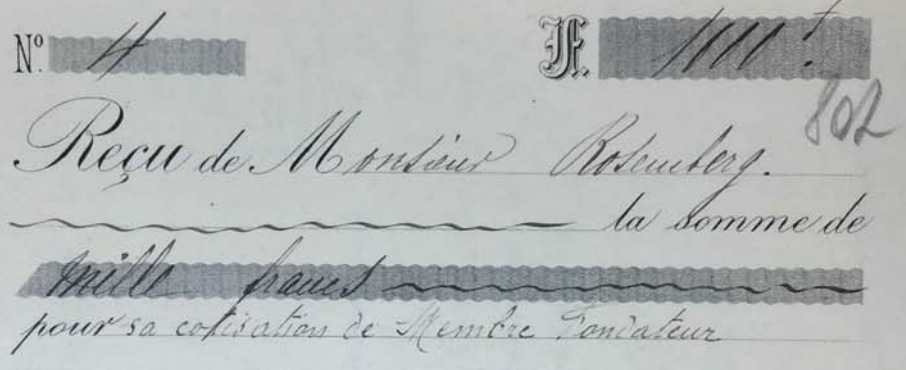 Nº 4 F. 1000 f
802
Reçu de Monsieur Rosemberg.
la somme de
mille francs
pour sa cotisation de Membre Fondateur